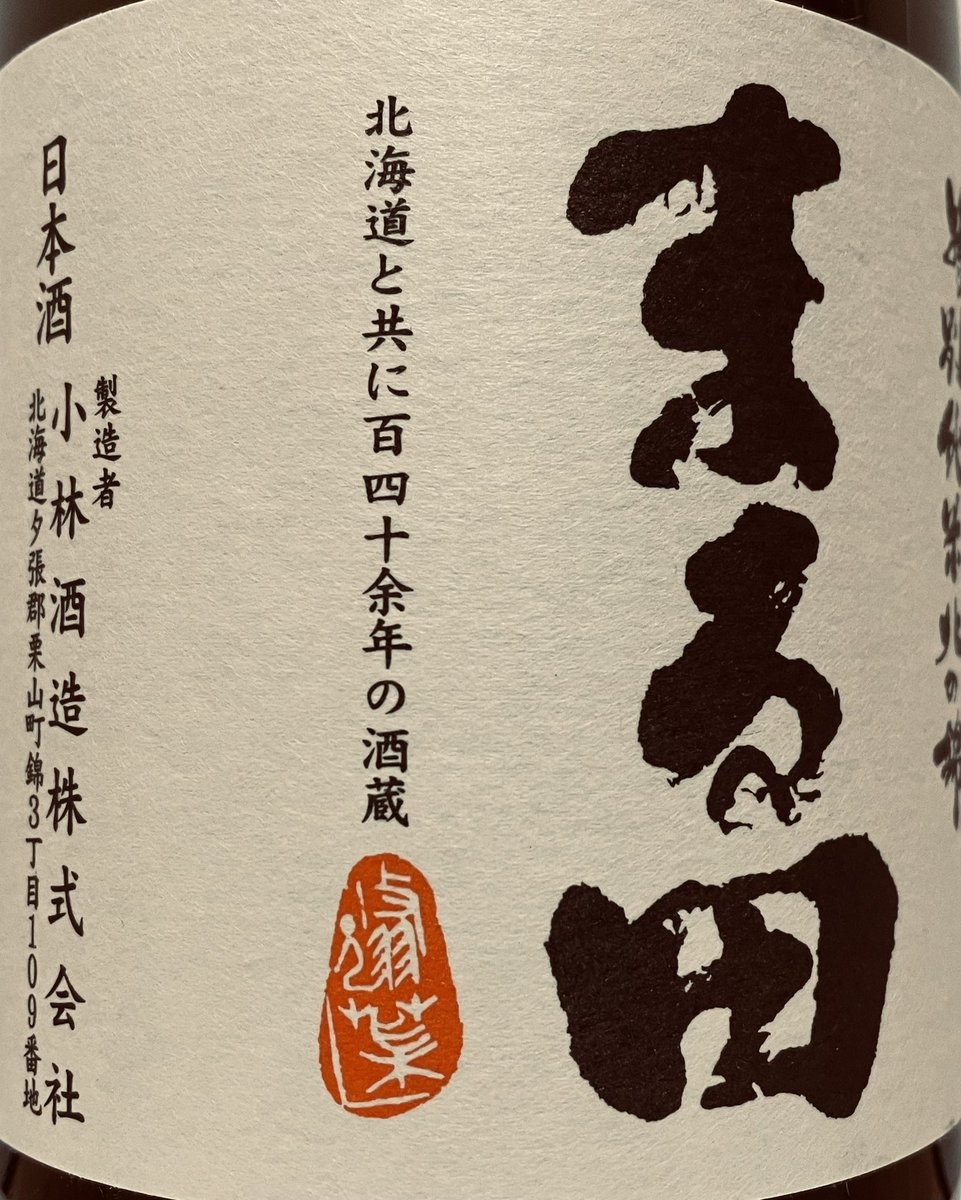 まる田
北海道と共に百四十余年の酒蔵
製造者
日本酒 小林酒造株式会社
北海道夕張郡栗山町錦3丁目109番地